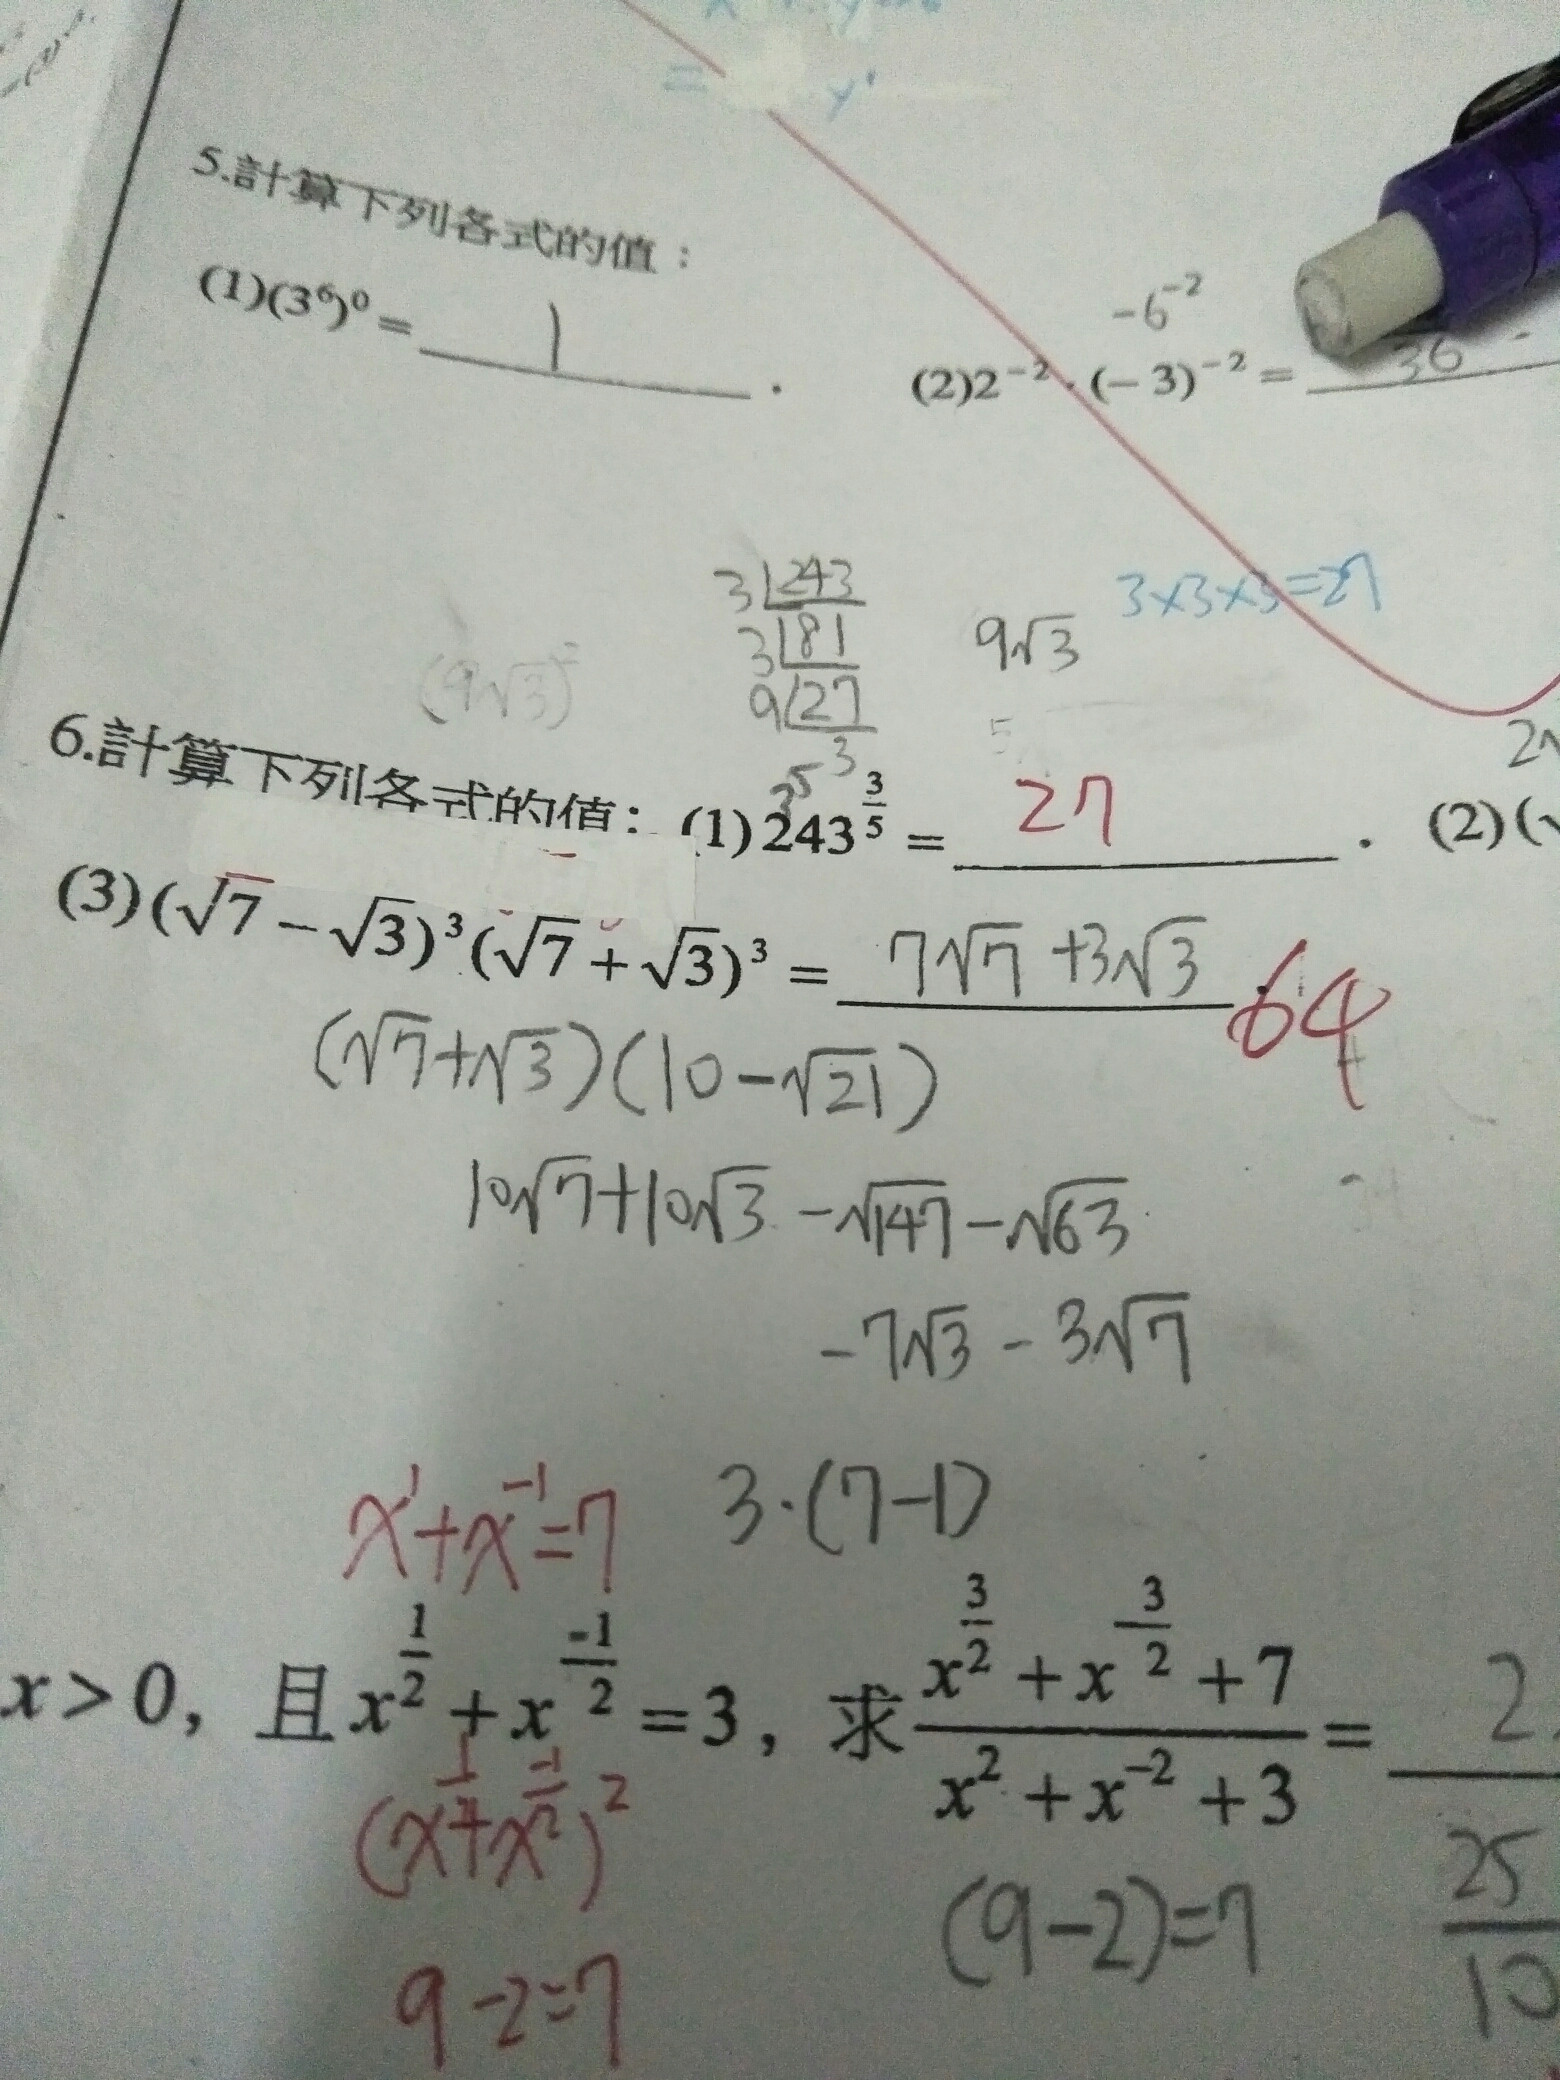 = y'
5.計算下列各式的值：
(1)(3⁶)⁰ = 1 .
-6⁻²
(2)2⁻² · (-3)⁻² = 36
3 243
3 81
9 27
3
(9√3)
9√3
3×3×3=27
6.計算下列各式的值： (1) 243^(3/5) = 27 . (2)(
3⁵
(3) (√7 - √3)³ (√7 + √3)³ = 7√7 +3√3 64
(√7+√3)(10-√21)
10√7+10√3 -√147-√63
-7√3 - 3√7
x¹+x⁻¹=7 3·(7-1)
x > 0, 且 x^(1/2) + x^(-1/2) = 3, 求 (x^(3/2) + x^(-3/2) + 7)/(x² + x⁻² + 3) = 2
(x^(1/2)+x^(-1/2))²
(9-2)=7
25/10
9-2=7